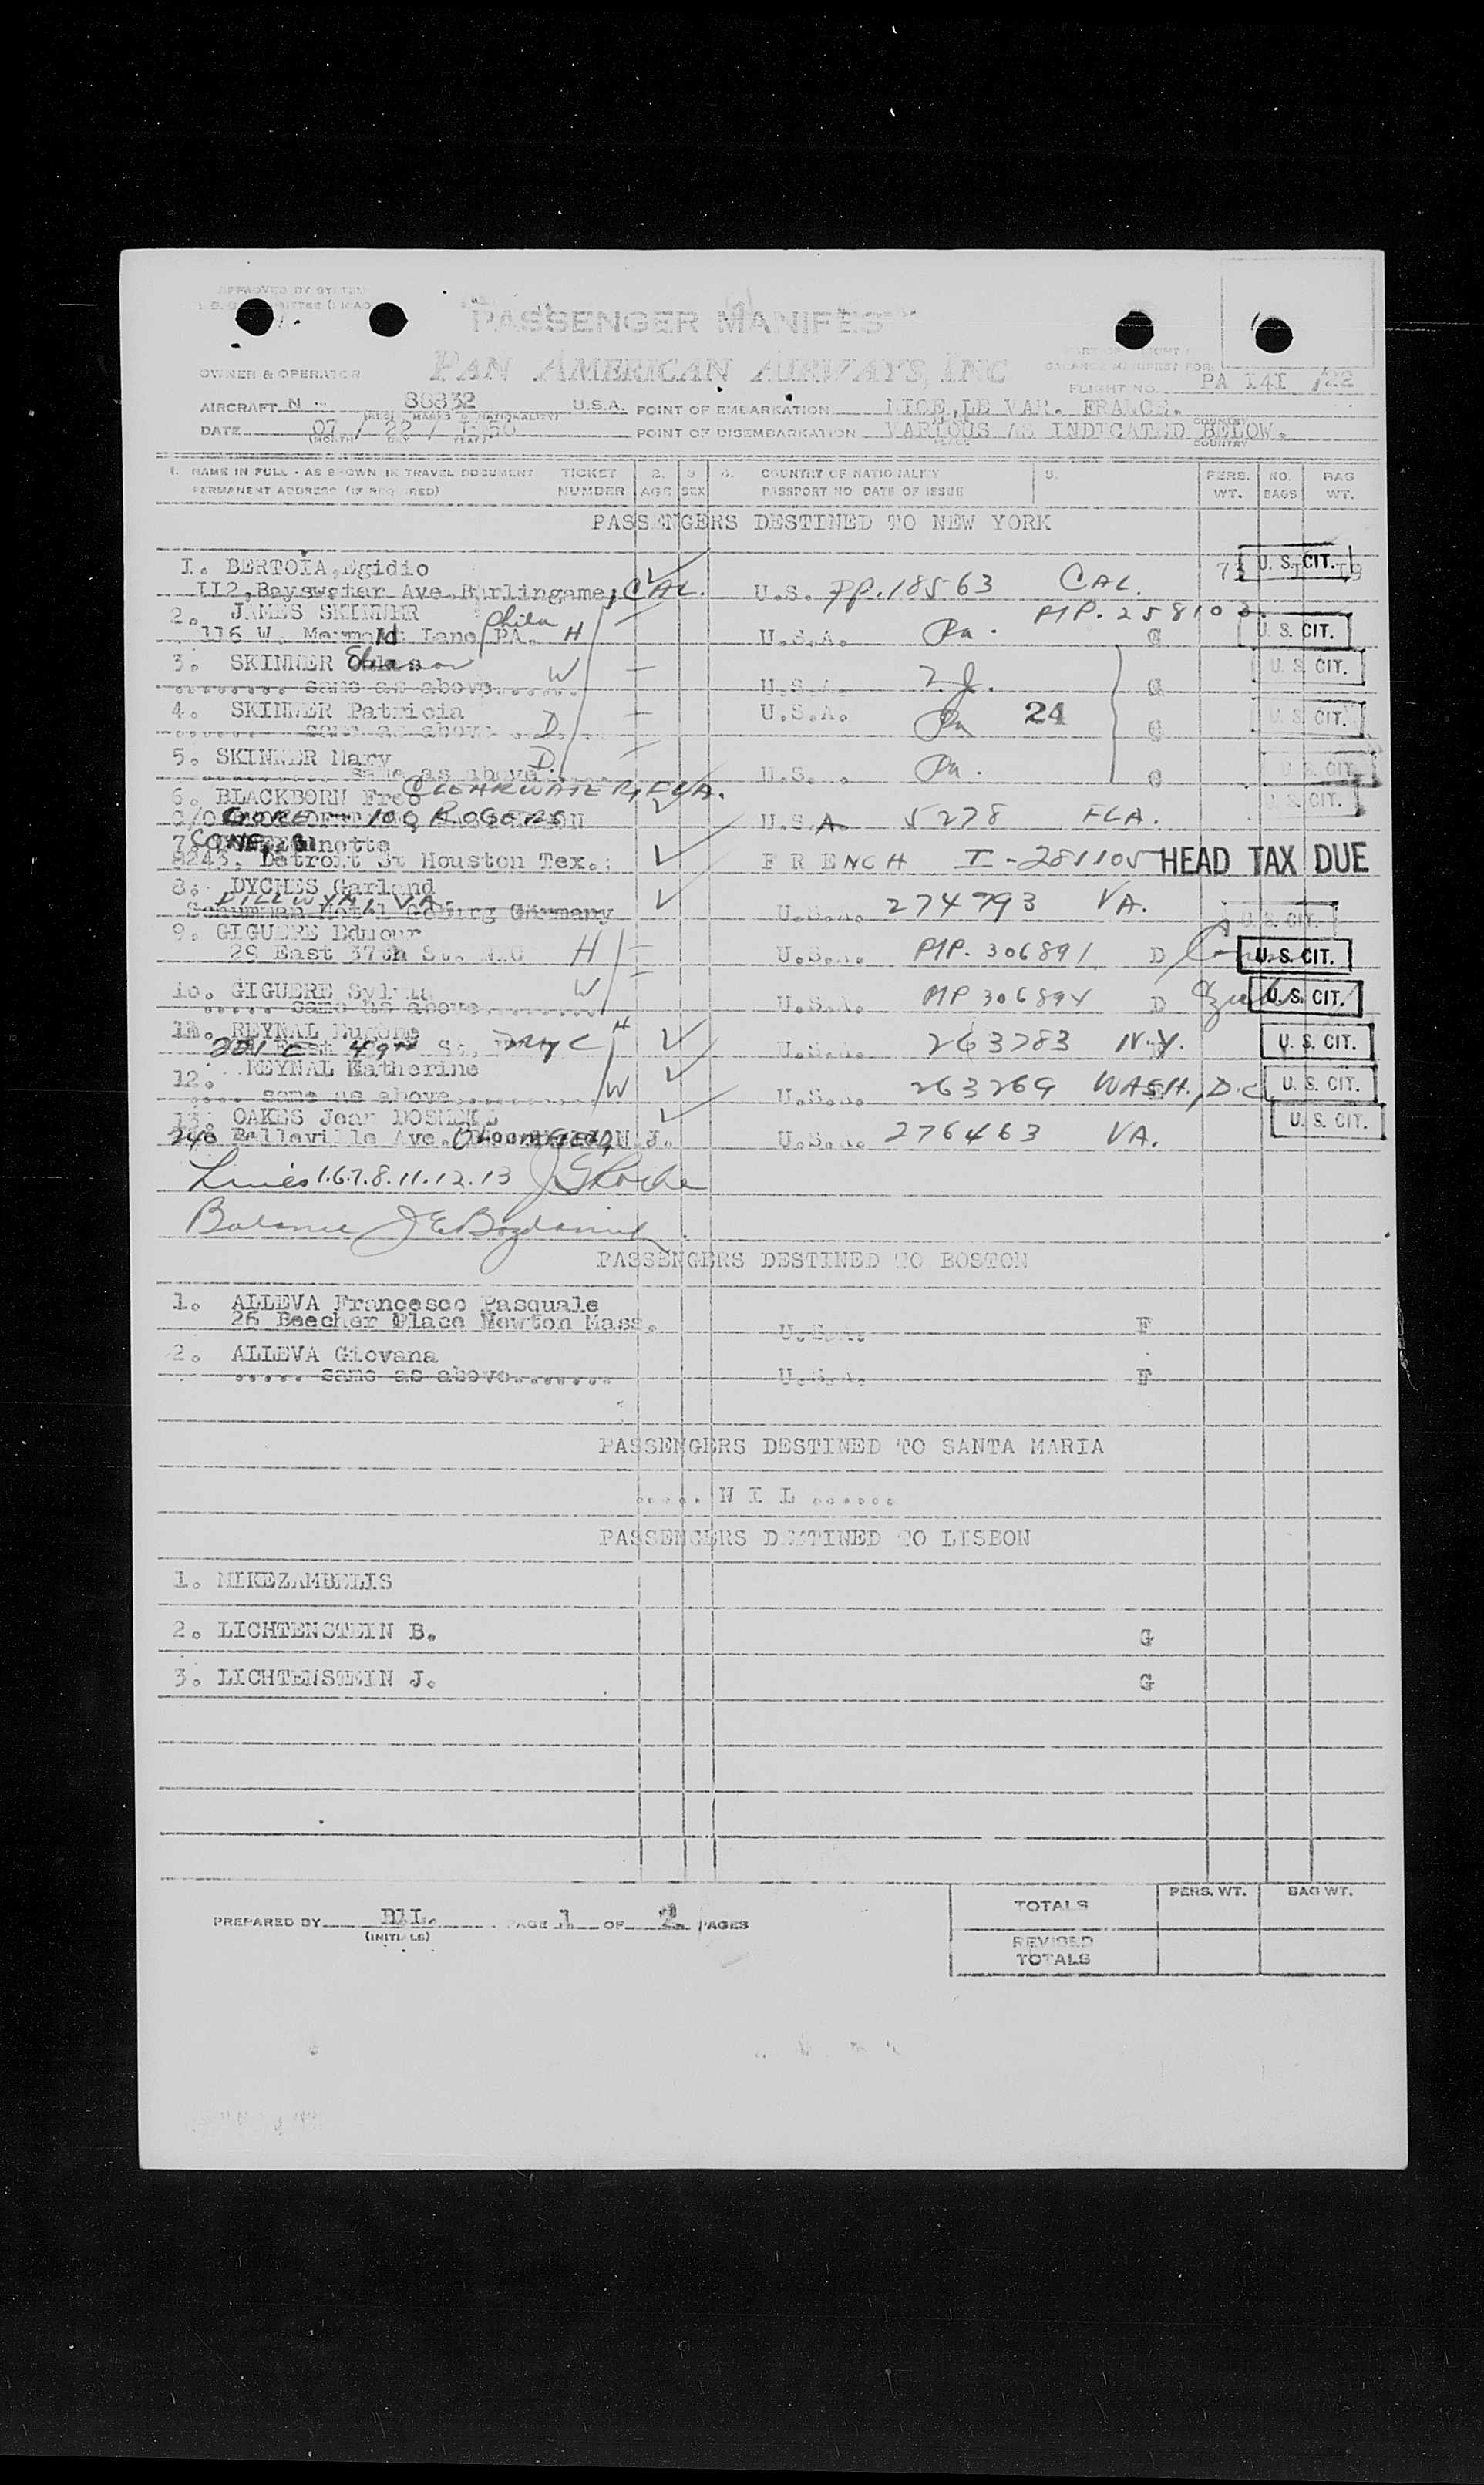 PASSENGER MANIFEST
PAN AMERICAN AIRWAYS, INC
OWNER & OPERATOR
FLIGHT NO. PA 141 /22
AIRCRAFT N - 88832 U.S.A. POINT OF EMBARKATION NICE, LE VAR. FRANCE.
DATE 07 / 22 / 1950 POINT OF DISEMBARKATION VARIOUS AS INDICATED BELOW.
COUNTRY
1. NAME IN FULL - AS SHOWN IN TRAVEL DOCUMENT TICKET 2. 3 4. COUNTRY OF NATIONALITY 5. PERS. NO. BAG
PERMANENT ADDRESS (IF REQUIRED) NUMBER AGE SEX PASSPORT NO DATE OF ISSUE WT. BAGS WT.
PASSENGERS DESTINED TO NEW YORK
I. BERTOIA, Egidio U.S. CIT.
II2, Bayswater Ave. Burlingame, CAL. U.S. pp. 18563 CAL.
2. JAMES SKINNER Phila PP. 258103
116 W. Mermaid Lane PA. H U.S.A. Pa. G U.S. CIT.
3. SKINNER W U.S. CIT.
same as above U.S.A. N.J. G
4. SKINNER Patricia U.S.A. Pa 24 G U.S. CIT.
same as above D
5. SKINNER Mary D U.S. CIT.
same as above U.S. Pa. G
6. BLACKBORN Fred CLEARWATER, FLA. U.S. CIT.
100 ROGERS U.S.A. 5278 FLA.
7
8243. Detroit St Houston Tex. FRENCH I-281105 HEAD TAX DUE
8. DYCHES Garland
DILLWYN, VA.
Germany U.S.A. 274793 VA. U.S. CIT.
9. GIGUERE Edmour
29 East 37th St. NYC H U.S.A. PP. 306891 D U.S. CIT.
10. GIGUERE Sylvia W
same as above U.S.A. PP 306894 D U.S. CIT.
11. REYNAL Eugene H
221 E 49th St. NYC U.S.A. 263783 N.Y. U.S. CIT.
12. REYNAL Katherine
same as above W U.S.A. 263269 WASH., D.C. U.S. CIT.
13. OAKES Jean U.S. CIT.
240 Belleville Ave. BLOOMFIELD, N J. U.S.A. 276463 VA.
Lines 1.6.7.8.11.12.13
Balance
PASSENGERS DESTINED TO BOSTON
1. ALLEVA Francesco Pasquale
26 Beecher Place Newton Mass. U.S.A. F
2. ALLEVA Giovana
..... same as above....... U.S.A. F
PASSENGERS DESTINED TO SANTA MARIA
..... N I L ......
PASSENGERS DESTINED TO LISBON
1. MIKEZAMBELIS
2. LICHTENSTEIN B. G
3. LICHTENSTEIN J. G
PREPARED BY (INITIALS) PAGE 1 OF 2 PAGES
TOTALS PERS. WT. BAG WT.
REVISED
TOTALS